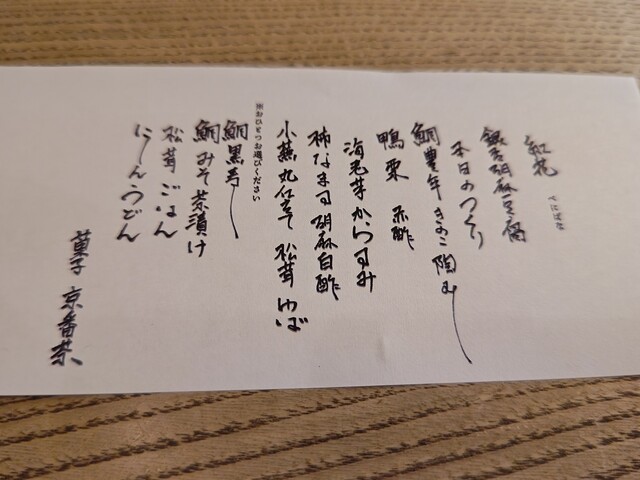 紅花 べにばな
銀杏胡麻豆腐
本日のつくり
鯛豊年 きのこ 陶むし
鴨 栗 赤酢
海老芋 からすみ
柿なます 胡麻白酢
小蕪丸仕立 松茸 ゆば
※おひとつお選びください
鯛黒寿し
鯛みそ茶漬け
松茸ごはん
にしんうどん
菓子 京番茶